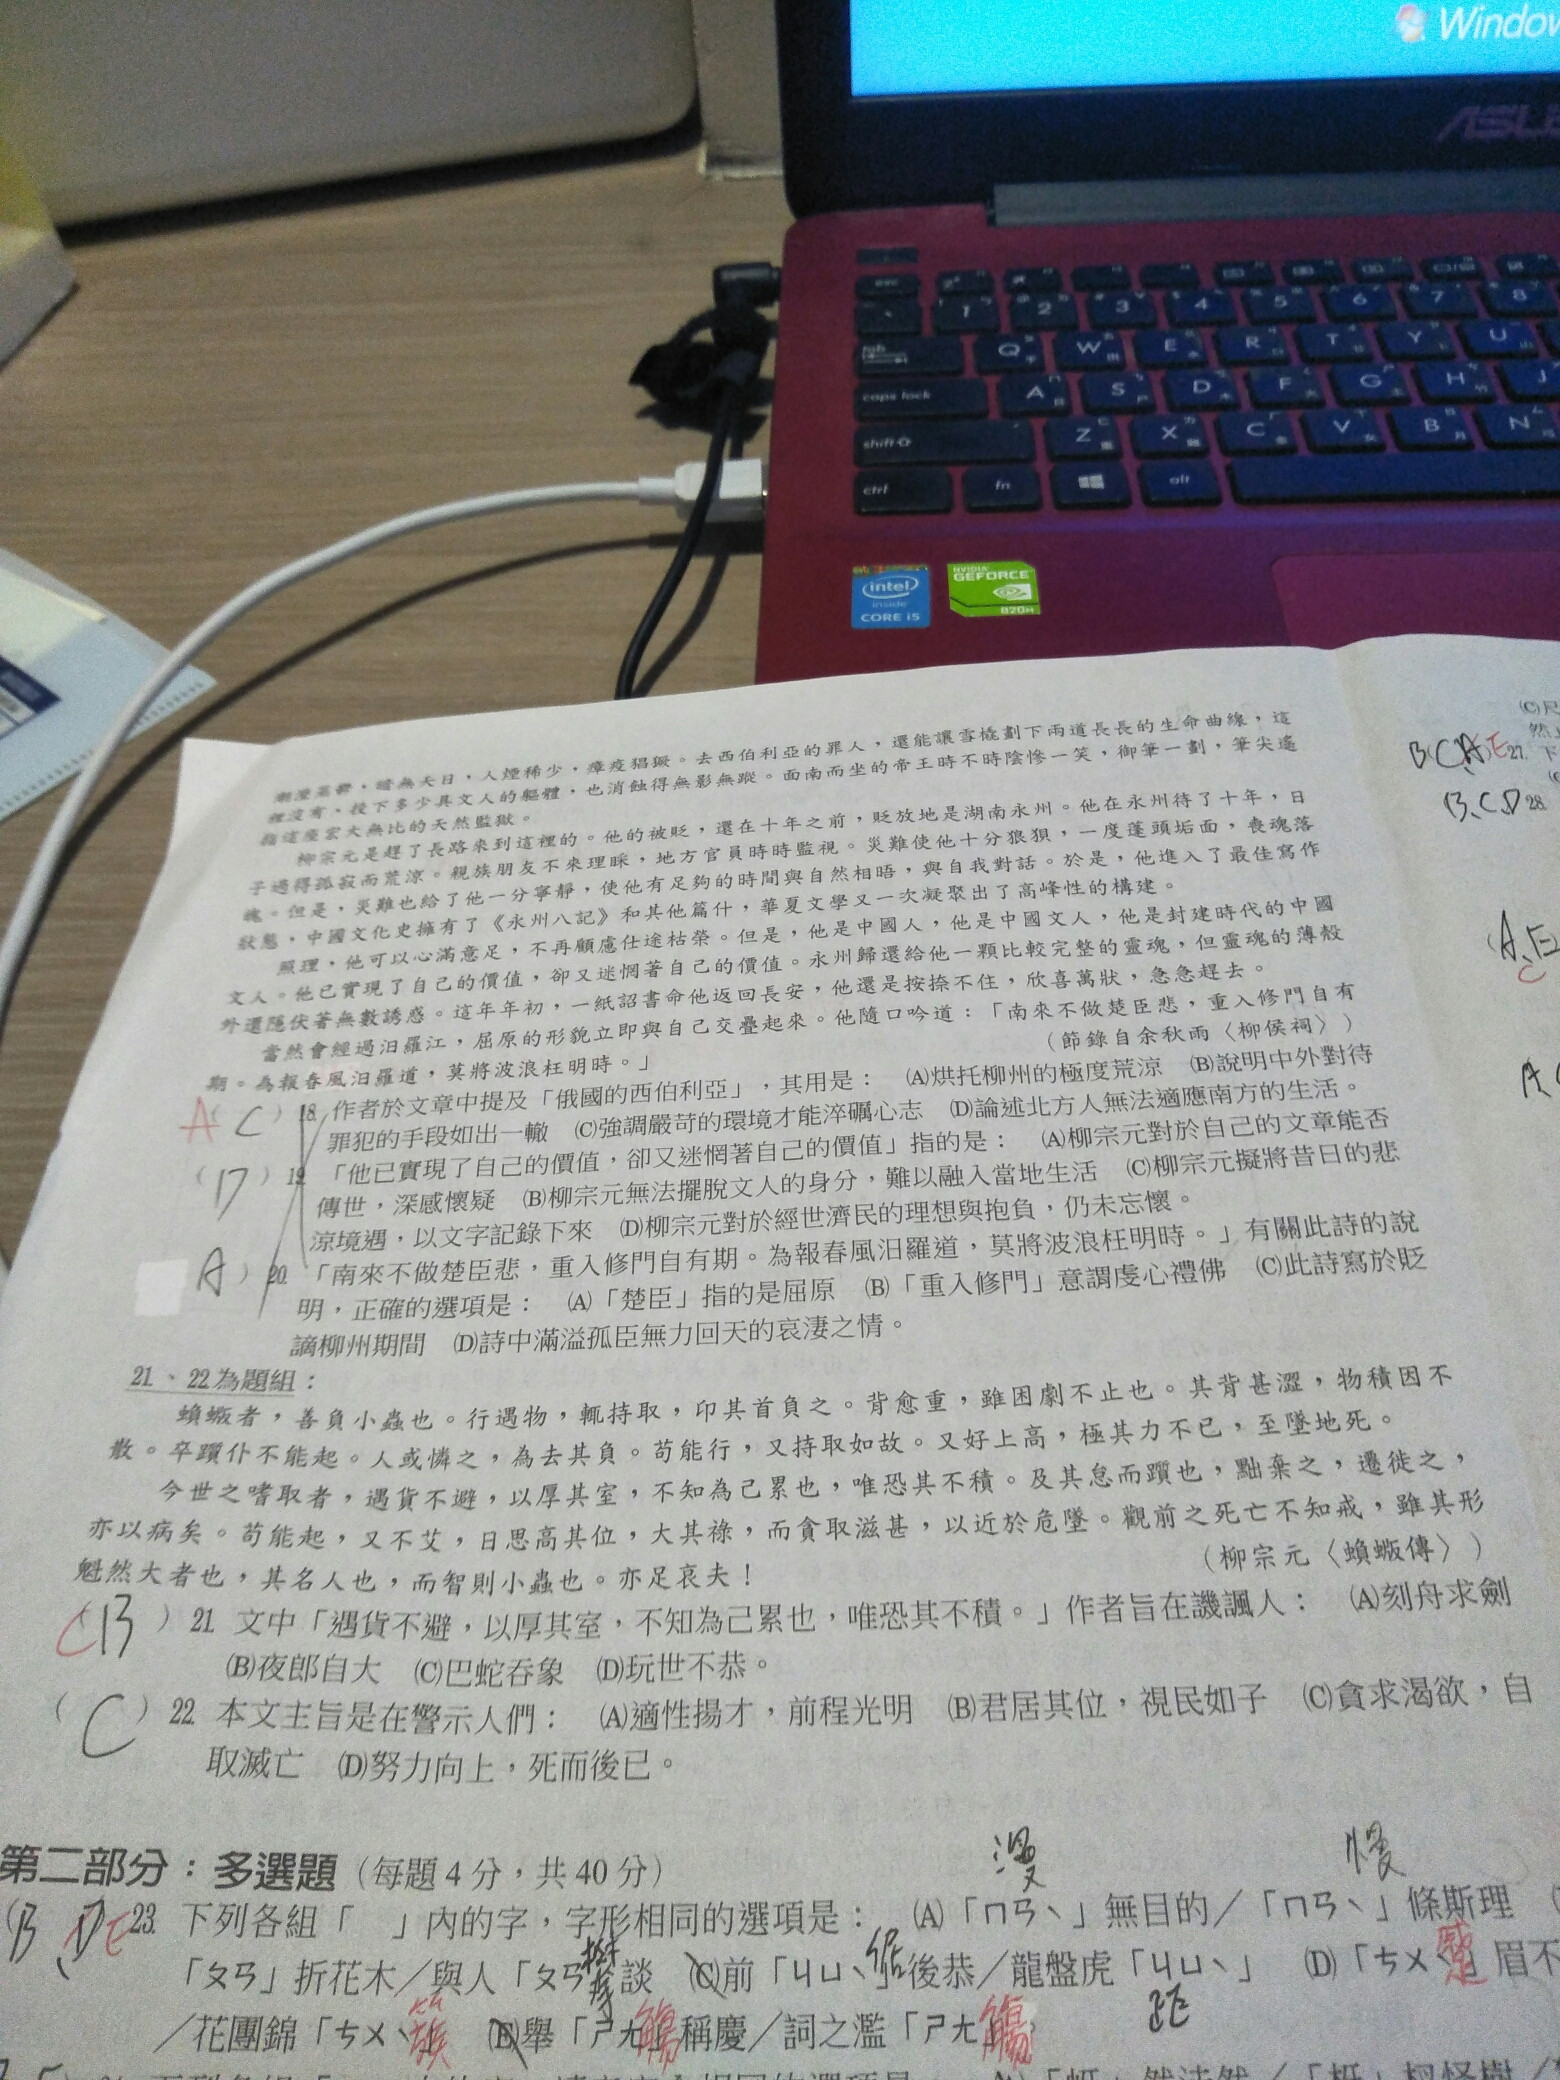 Window
ASUS
esc
1 2 3 4 5 6 7 8
tab Q W E R T Y U
caps lock A S D F G H J
shift Z X C V B N
ctrl fn alt
intel inside CORE i5
NVIDIA GEFORCE 820M
暗無天日，人煙稀少，瘴疫猖獗。去西伯利亞的罪人，還能讓雪橇劃下兩道長長的生命曲線，這
裡沒有，投下多少具文人的軀體，也消蝕得無影無蹤。面南而坐的帝王時不時陰慘一笑，御筆一劃，筆尖遙
指這座宏大無比的天然監獄。
柳宗元是趕了長路來到這裡的。他的被貶，還在十年之前，貶放地是湖南永州。他在永州待了十年，日
子過得孤寂而荒涼。親族朋友不來理睬，地方官員時時監視。災難使他十分狼狽，一度蓬頭垢面，喪魂落
魄。但是，災難也給了他一分寧靜，使他有足夠的時間與自然相晤，與自我對話。於是，他進入了最佳寫作
狀態，中國文化史擁有了《永州八記》和其他篇什，華夏文學又一次凝聚出了高峰性的構建。
照理，他可以心滿意足，不再顧慮仕途枯榮。但是，他是中國人，他是中國文人，他是封建時代的中國
文人。他已實現了自己的價值，卻又迷惘著自己的價值。永州歸還給他一顆比較完整的靈魂，但靈魂的薄殼
外還隱伏著無數誘惑。這年年初，一紙詔書命他返回長安，他還是按捺不住，欣喜萬狀，急急趕去。
當然會經過汨羅江，屈原的形貌立即與自己交疊起來。他隨口吟道：「南來不做楚臣悲，重入修門自有
期。為報春風汨羅道，莫將波浪枉明時。」（節錄自余秋雨〈柳侯祠〉）
A（C）18. 作者於文章中提及「俄國的西伯利亞」，其用是： (A)烘托柳州的極度荒涼 (B)說明中外對待
罪犯的手段如出一轍 (C)強調嚴苛的環境才能淬礪心志 (D)論述北方人無法適應南方的生活。
（D）19. 「他已實現了自己的價值，卻又迷惘著自己的價值」指的是： (A)柳宗元對於自己的文章能否
傳世，深感懷疑 (B)柳宗元無法擺脫文人的身分，難以融入當地生活 (C)柳宗元擬將昔日的悲
涼境遇，以文字記錄下來 (D)柳宗元對於經世濟民的理想與抱負，仍未忘懷。
A）20. 「南來不做楚臣悲，重入修門自有期。為報春風汨羅道，莫將波浪枉明時。」有關此詩的說
明，正確的選項是： (A)「楚臣」指的是屈原 (B)「重入修門」意謂虔心禮佛 (C)此詩寫於貶
謫柳州期間 (D)詩中滿溢孤臣無力回天的哀淒之情。
21、22為題組：
蝜蝂者，善負小蟲也。行遇物，輒持取，卬其首負之。背愈重，雖困劇不止也。其背甚澀，物積因不
散。卒躓仆不能起。人或憐之，為去其負。苟能行，又持取如故。又好上高，極其力不已，至墜地死。
今世之嗜取者，遇貨不避，以厚其室，不知為己累也，唯恐其不積。及其怠而躓也，黜棄之，遷徙之，
亦以病矣。苟能起，又不艾，日思高其位，大其祿，而貪取滋甚，以近於危墜。觀前之死亡不知戒，雖其形
魁然大者也，其名人也，而智則小蟲也。亦足哀夫！（柳宗元〈蝜蝂傳〉）
C（B）21. 文中「遇貨不避，以厚其室，不知為己累也，唯恐其不積。」作者旨在譏諷人： (A)刻舟求劍
(B)夜郎自大 (C)巴蛇吞象 (D)玩世不恭。
（C）22. 本文主旨是在警示人們： (A)適性揚才，前程光明 (B)君居其位，視民如子 (C)貪求渴欲，自
取滅亡 (D)努力向上，死而後已。
第二部分：多選題（每題4分，共40分）
漫 慢
（B、D E 23. 下列各組「 」內的字，字形相同的選項是： (A)「ㄇㄢˋ」無目的／「ㄇㄢˋ」條斯理
「ㄆㄢ」折花木／與人「ㄆㄢ」談 (C)前「ㄐㄩˋ」後恭／龍盤虎「ㄐㄩˋ」 (D)「ㄘㄨˋ」眉不
踞
／花團錦「ㄘㄨˋ」 簇 (E)舉「ㄕㄤ」觴稱慶／詞之濫「ㄕㄤ」觴
B(C,A)E 27. 下
B、C、D 28.
A、E
C